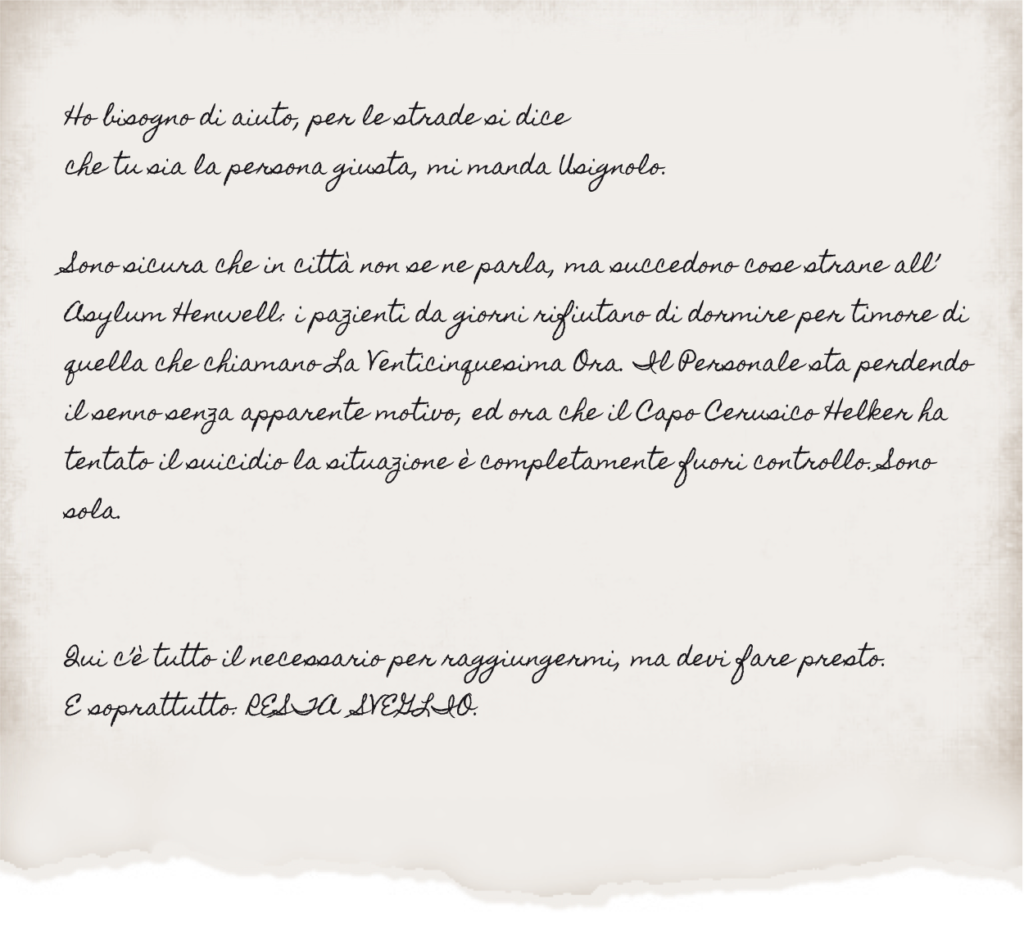 Ho bisogno di aiuto, per le strade si dice
che tu sia la persona giusta, mi manda Usignolo.
Sono sicura che in città non se ne parla, ma succedono cose strane all'
Asylum Henwell: i pazienti da giorni rifiutano di dormire per timore di
quella che chiamano La Venticinquesima Ora. Il Personale sta perdendo
il senno senza apparente motivo, ed ora che il Capo Cerusico Helker ha
tentato il suicidio la situazione è completamente fuori controllo. Sono
sola.
Qui c'è tutto il necessario per raggiungermi, ma devi fare presto.
E soprattutto: RESTA SVEGLIO.